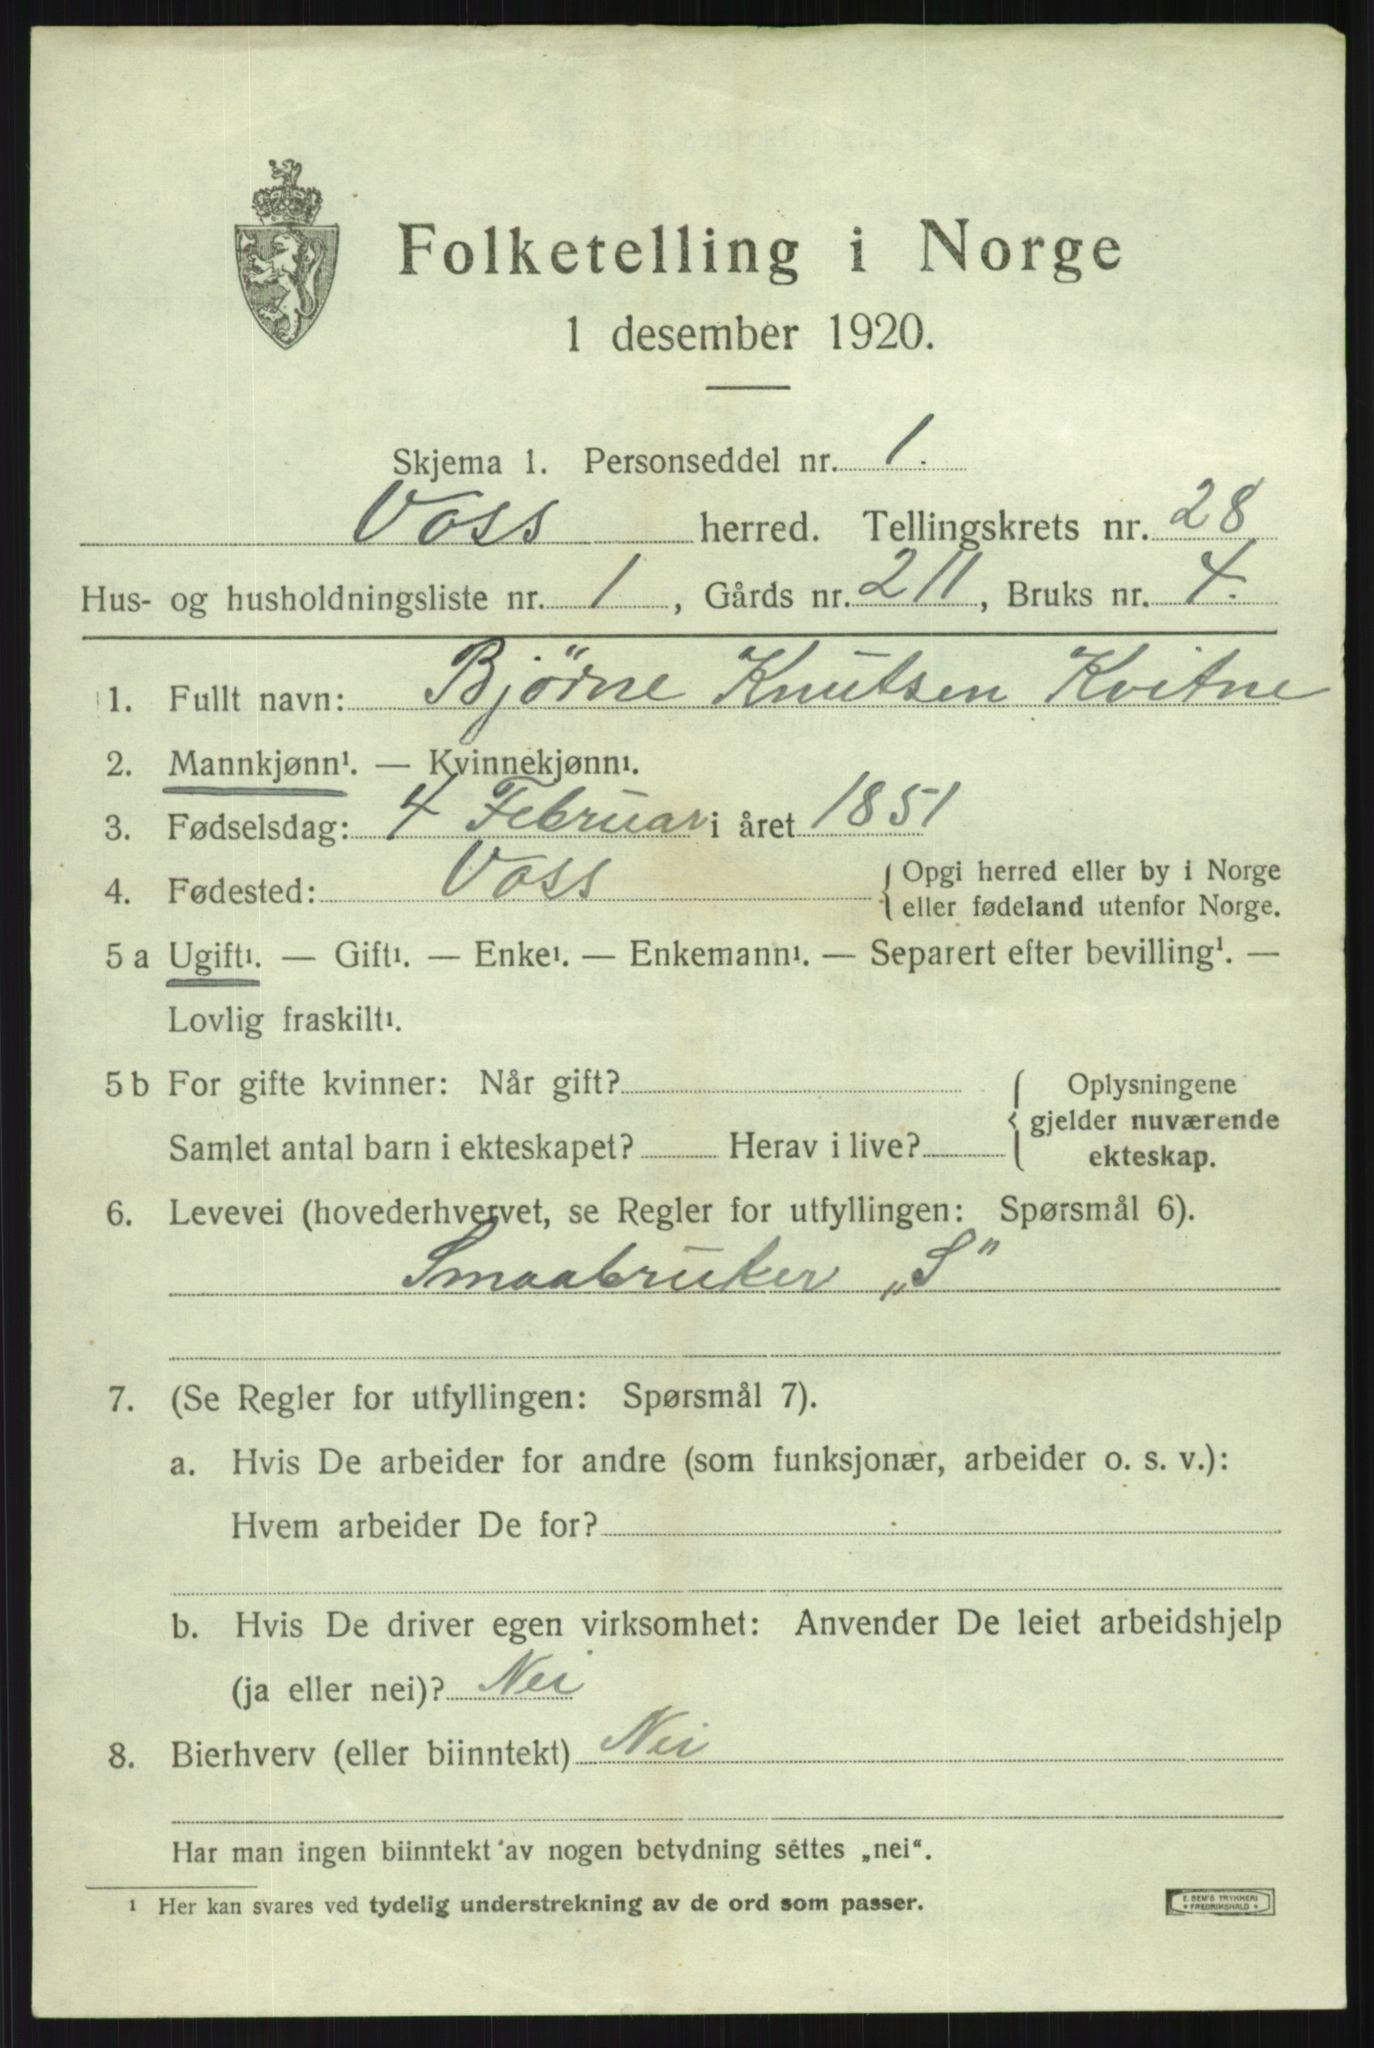 Folketelling i Norge
1 desember 1920.
Skjema 1. Personseddel nr. 1.
Voss herred. Tellingskrets nr. 28
Hus- og husholdningsliste nr. 1, Gårds nr. 211, Bruks nr. 4.
1. Fullt navn: Bjørne Knutsen Kvitne
2. Mannkjønn¹. — Kvinnekjønn¹.
3. Fødselsdag: 4 Februar i året 1851
4. Fødested: Voss { Opgi herred eller by i Norge
eller fødeland utenfor Norge.
5 a Ugift¹. — Gift¹. — Enke¹. — Enkemann¹. — Separert efter bevilling¹. —
Lovlig fraskilt¹.
5 b For gifte kvinner: Når gift? { Oplysningene
gjelder nuværende
Samlet antal barn i ekteskapet? Herav i live? ekteskap.
6. Levevei (hovederhvervet, se Regler for utfyllingen: Spørsmål 6).
Smaabruker „S"
7. (Se Regler for utfyllingen: Spørsmål 7).
a. Hvis De arbeider for andre (som funksjonær, arbeider o. s. v.):
Hvem arbeider De for?
b. Hvis De driver egen virksomhet: Anvender De leiet arbeidshjelp
(ja eller nei)? Nei
8. Bierhverv (eller biinntekt) Nei
Har man ingen biinntekt av nogen betydning settes „nei".
¹ Her kan svares ved tydelig understrekning av de ord som passer.
E. SEM'S TRYKKERI
FREDRIKSHALD